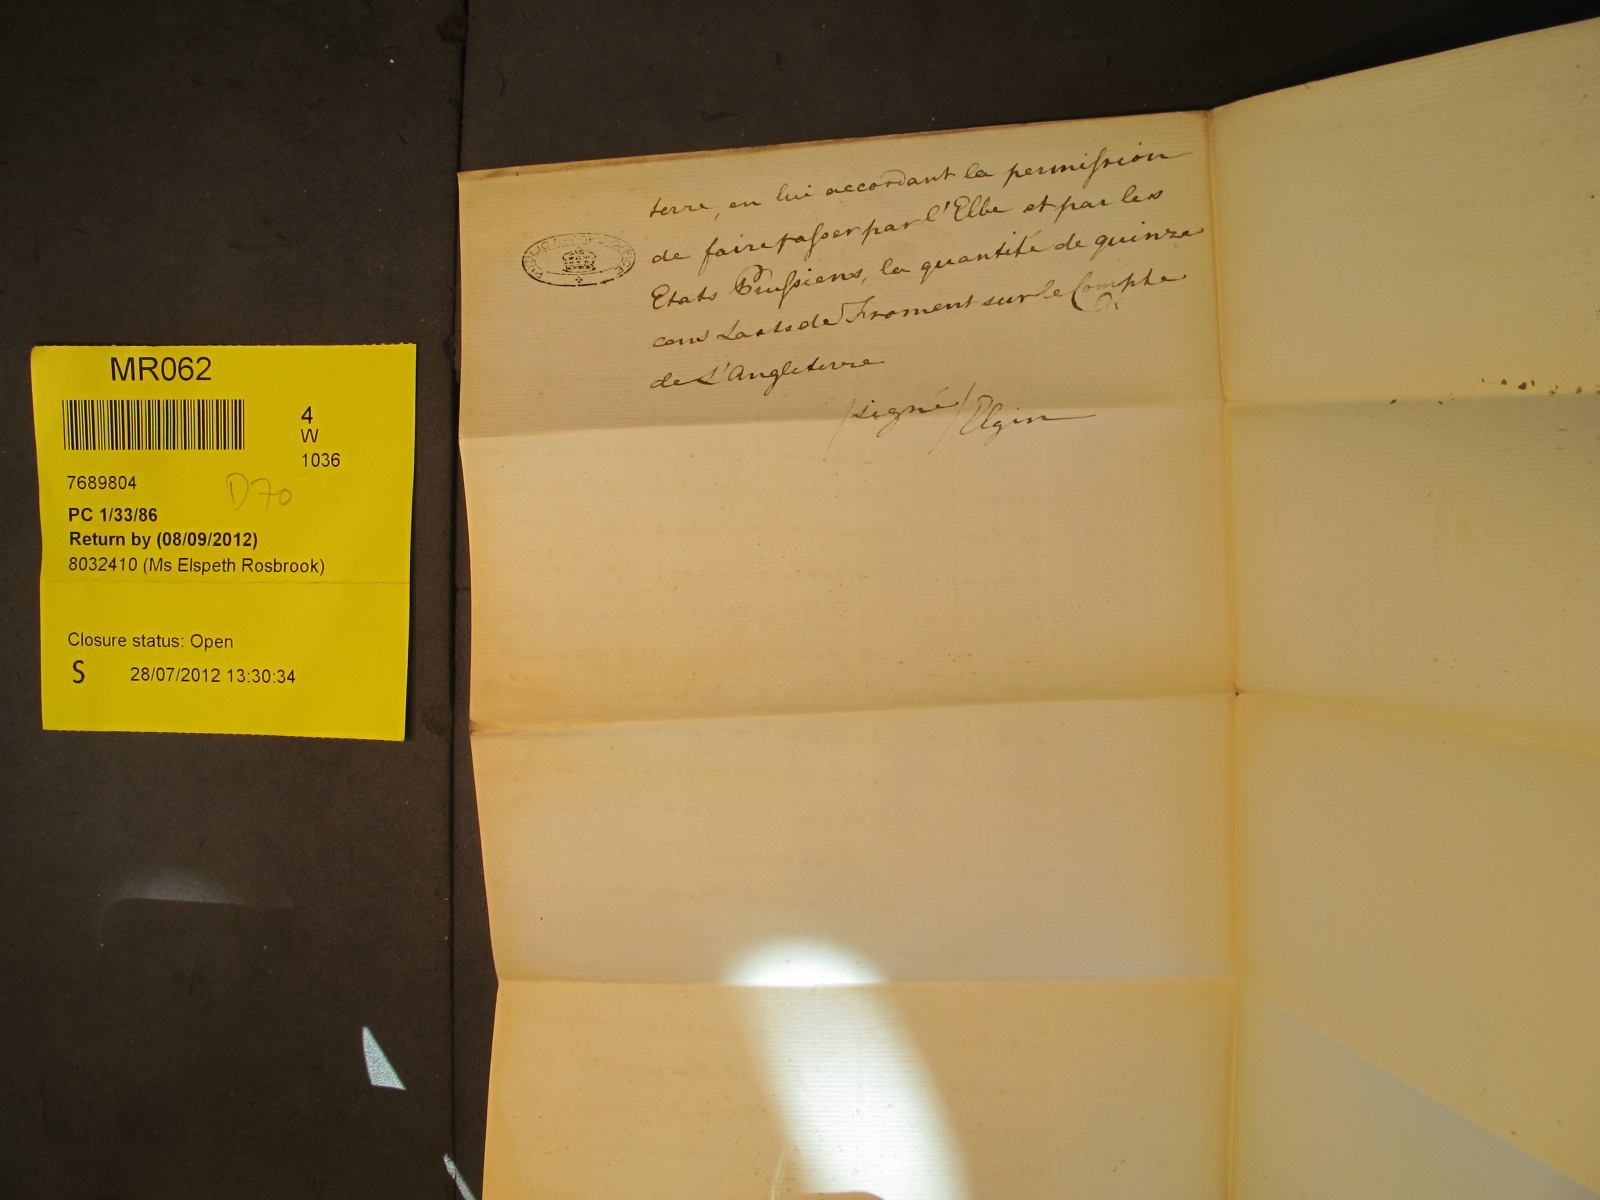 MR062
4
W
1036
7689804
D70
PC 1/33/86
Return by (08/09/2012)
8032410 (Ms Elspeth Rosbrook)
Closure status: Open
S 28/07/2012 13:30:34
terre, en lui accordant la permission
de faire passer par l'Elbe et par les
Etats Prussiens, la quantité de quinze
cens Lasts de Froment sur le Compte
de L'Angleterre
/signé/ Elgin